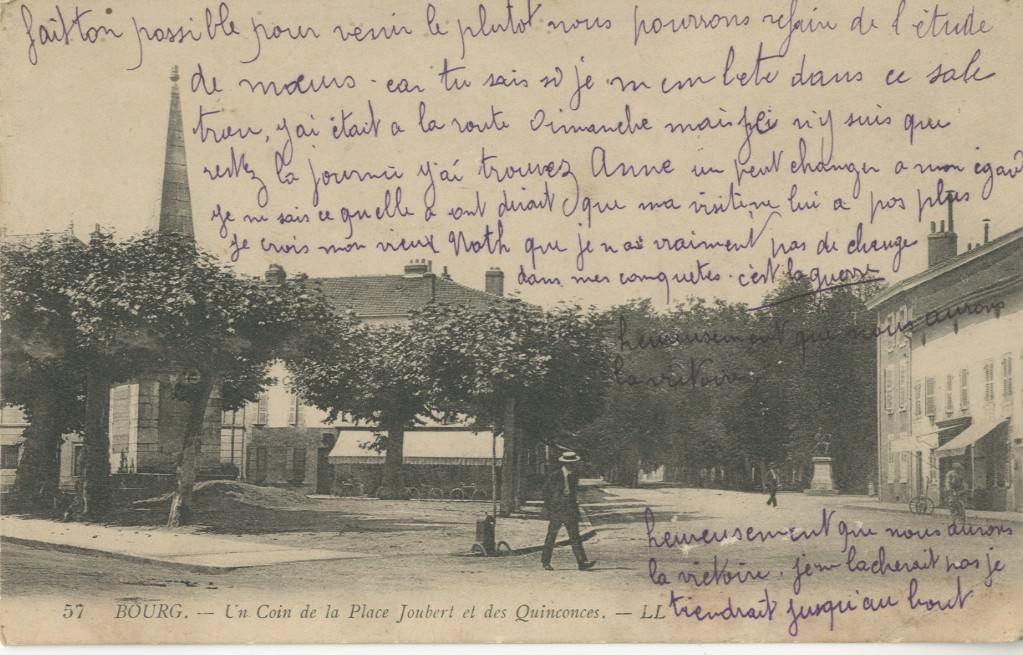 fait ton possible pour venir le plutot nous pourrons refair de l'étude
de mœurs. car tu sais si je m'embete dans ce sale
trou, j'ai était a la route Dimanche mais je n'y suis que
restez la journée j'ai trouvez Anne un peut changer a mon égard
je ne sais ce quelle a ont dirait que ma visite ne lui a pas plus
je crois mon vieux que je n'ai vraiment pas de change
dans mes conquetes. c'est la guerre
heureusement que nous aurons
la victoire.
heureusement que nous aurons
la victoire. je m lacherait pas je
tiendrait jusqu'au bout
57 BOURG. — Un Coin de la Place Joubert et des Quinconces. — LL